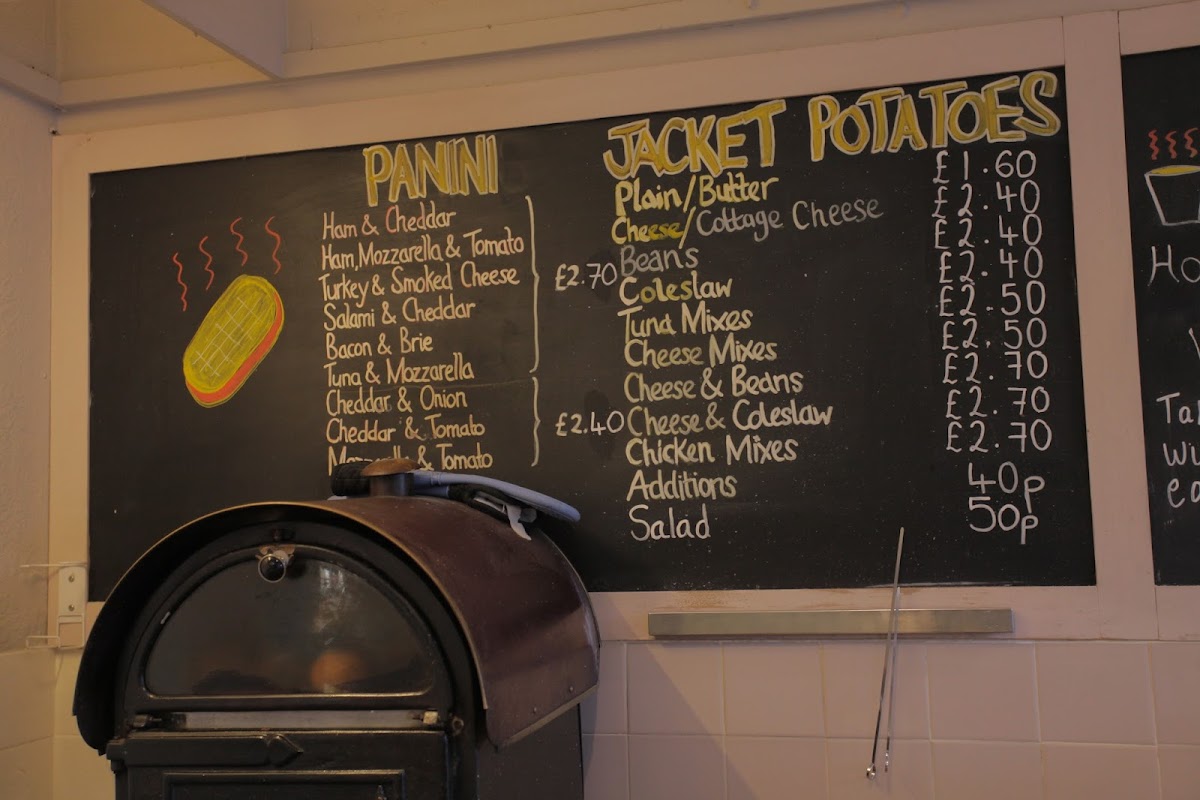 PANINI
Ham & Cheddar
Ham, Mozzarella & Tomato
Turkey & Smoked Cheese
Salami & Cheddar
Bacon & Brie
Tuna & Mozzarella
£2.70
Cheddar & Onion
Cheddar & Tomato
Mozzarella & Tomato
£2.40
JACKET POTATOES
Plain/Butter £1.60
Cheese/Cottage Cheese £2.40
Beans £2.40
Coleslaw £2.40
Tuna Mixes £2.50
Cheese Mixes £2.50
Cheese & Beans £2.70
Cheese & Coleslaw £2.70
Chicken Mixes £2.70
Additions 40p
Salad 50p